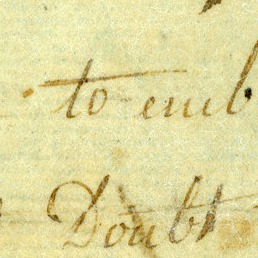 to emb
Doubt